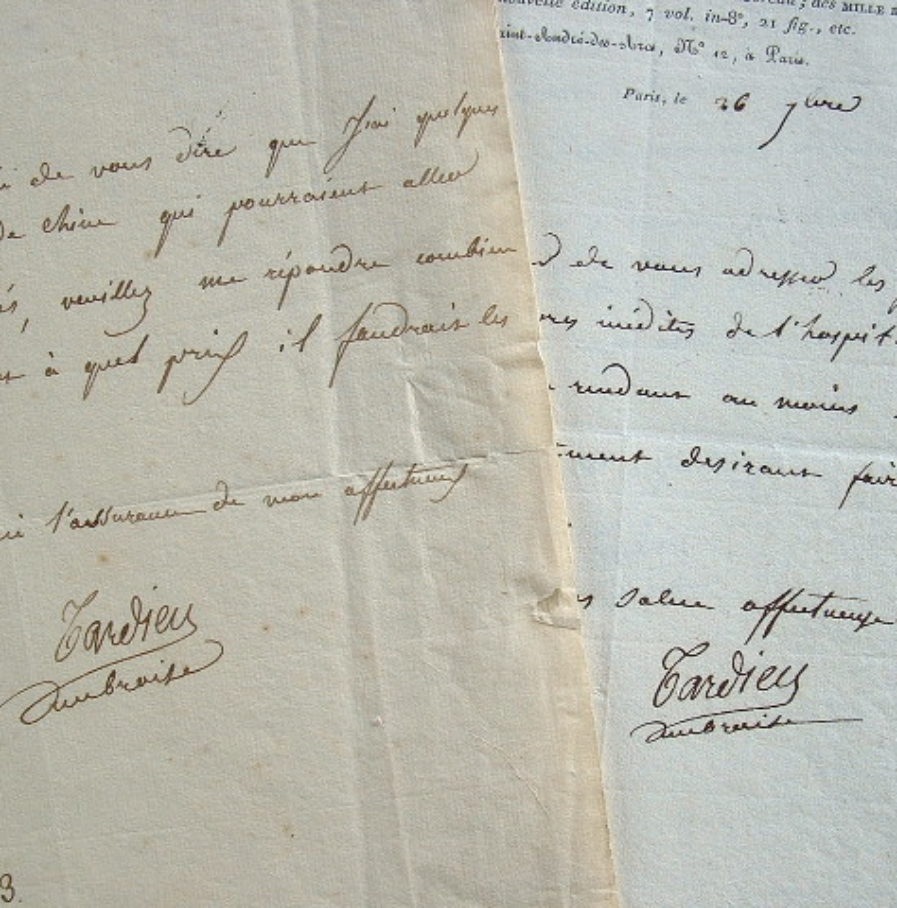 de vous dire que j'ai quelques
de chine qui pourraient aller
veuillez me répondre combien
à quel prix il faudrait les
l'assurance de mon affectueux
Tardieu
Ambroise
3.
des MILLE
nouvelle édition, 7 vol. in-8°, 21 fig., etc.
Saint-André-des-Arcs, N° 12, à Paris.
Paris, le 26 7bre
de vous adresser les
inédites de l'hospit
rendant au moins
desirant fair
salue affectueuse
Tardieu
Ambroise